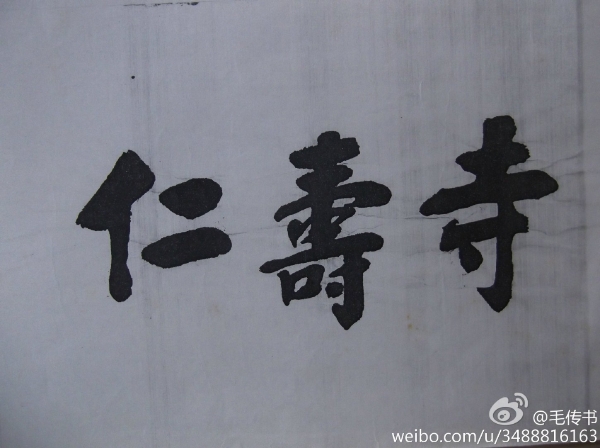 仁壽寺
@毛传书
weibo.com/u/3488816163